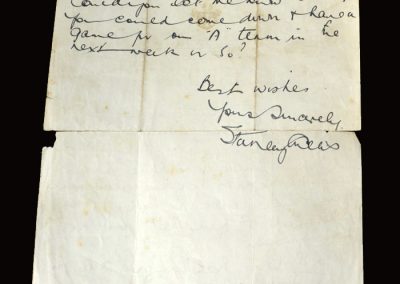 Could you let me know
you could come down & have a
game for our "A" team in the
next week or so?
Best wishes
Yours Sincerely,
Stanley